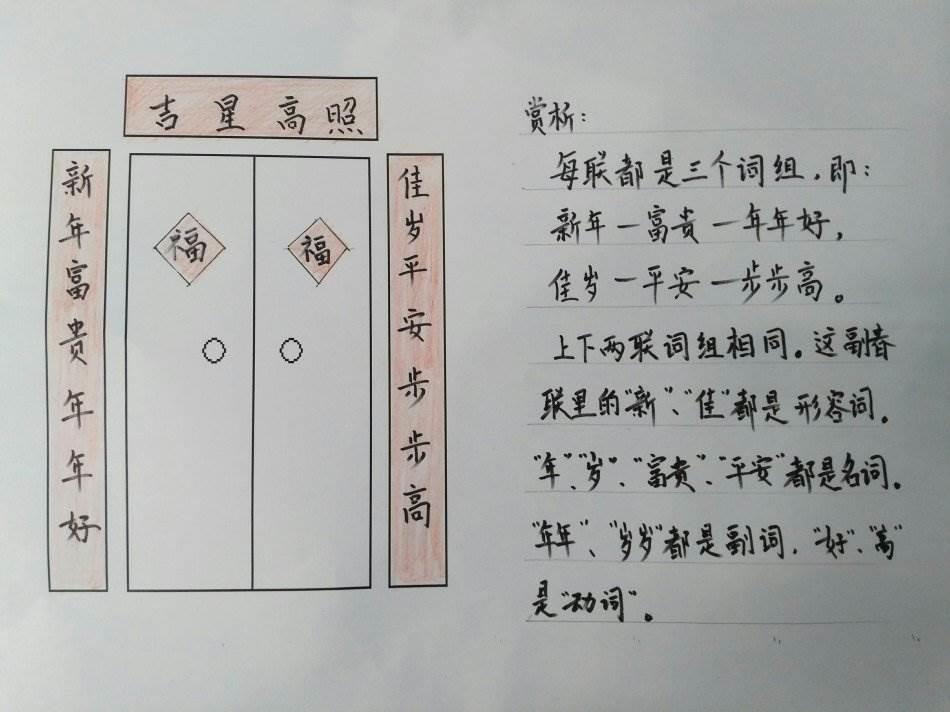 吉星高照
新年富贵年年好
福
福
佳岁平安步步高
赏析：
每联都是三个词组，即：
新年一富贵一年年好，
佳岁一平安一步步高。
上下两联词组相同。这副春
联里的"新"、"佳"都是形容词。
"年"、"岁"、"富贵"、"平安"都是名词。
"年年"、"岁岁"都是副词，"好"、"高"
是"动词"。